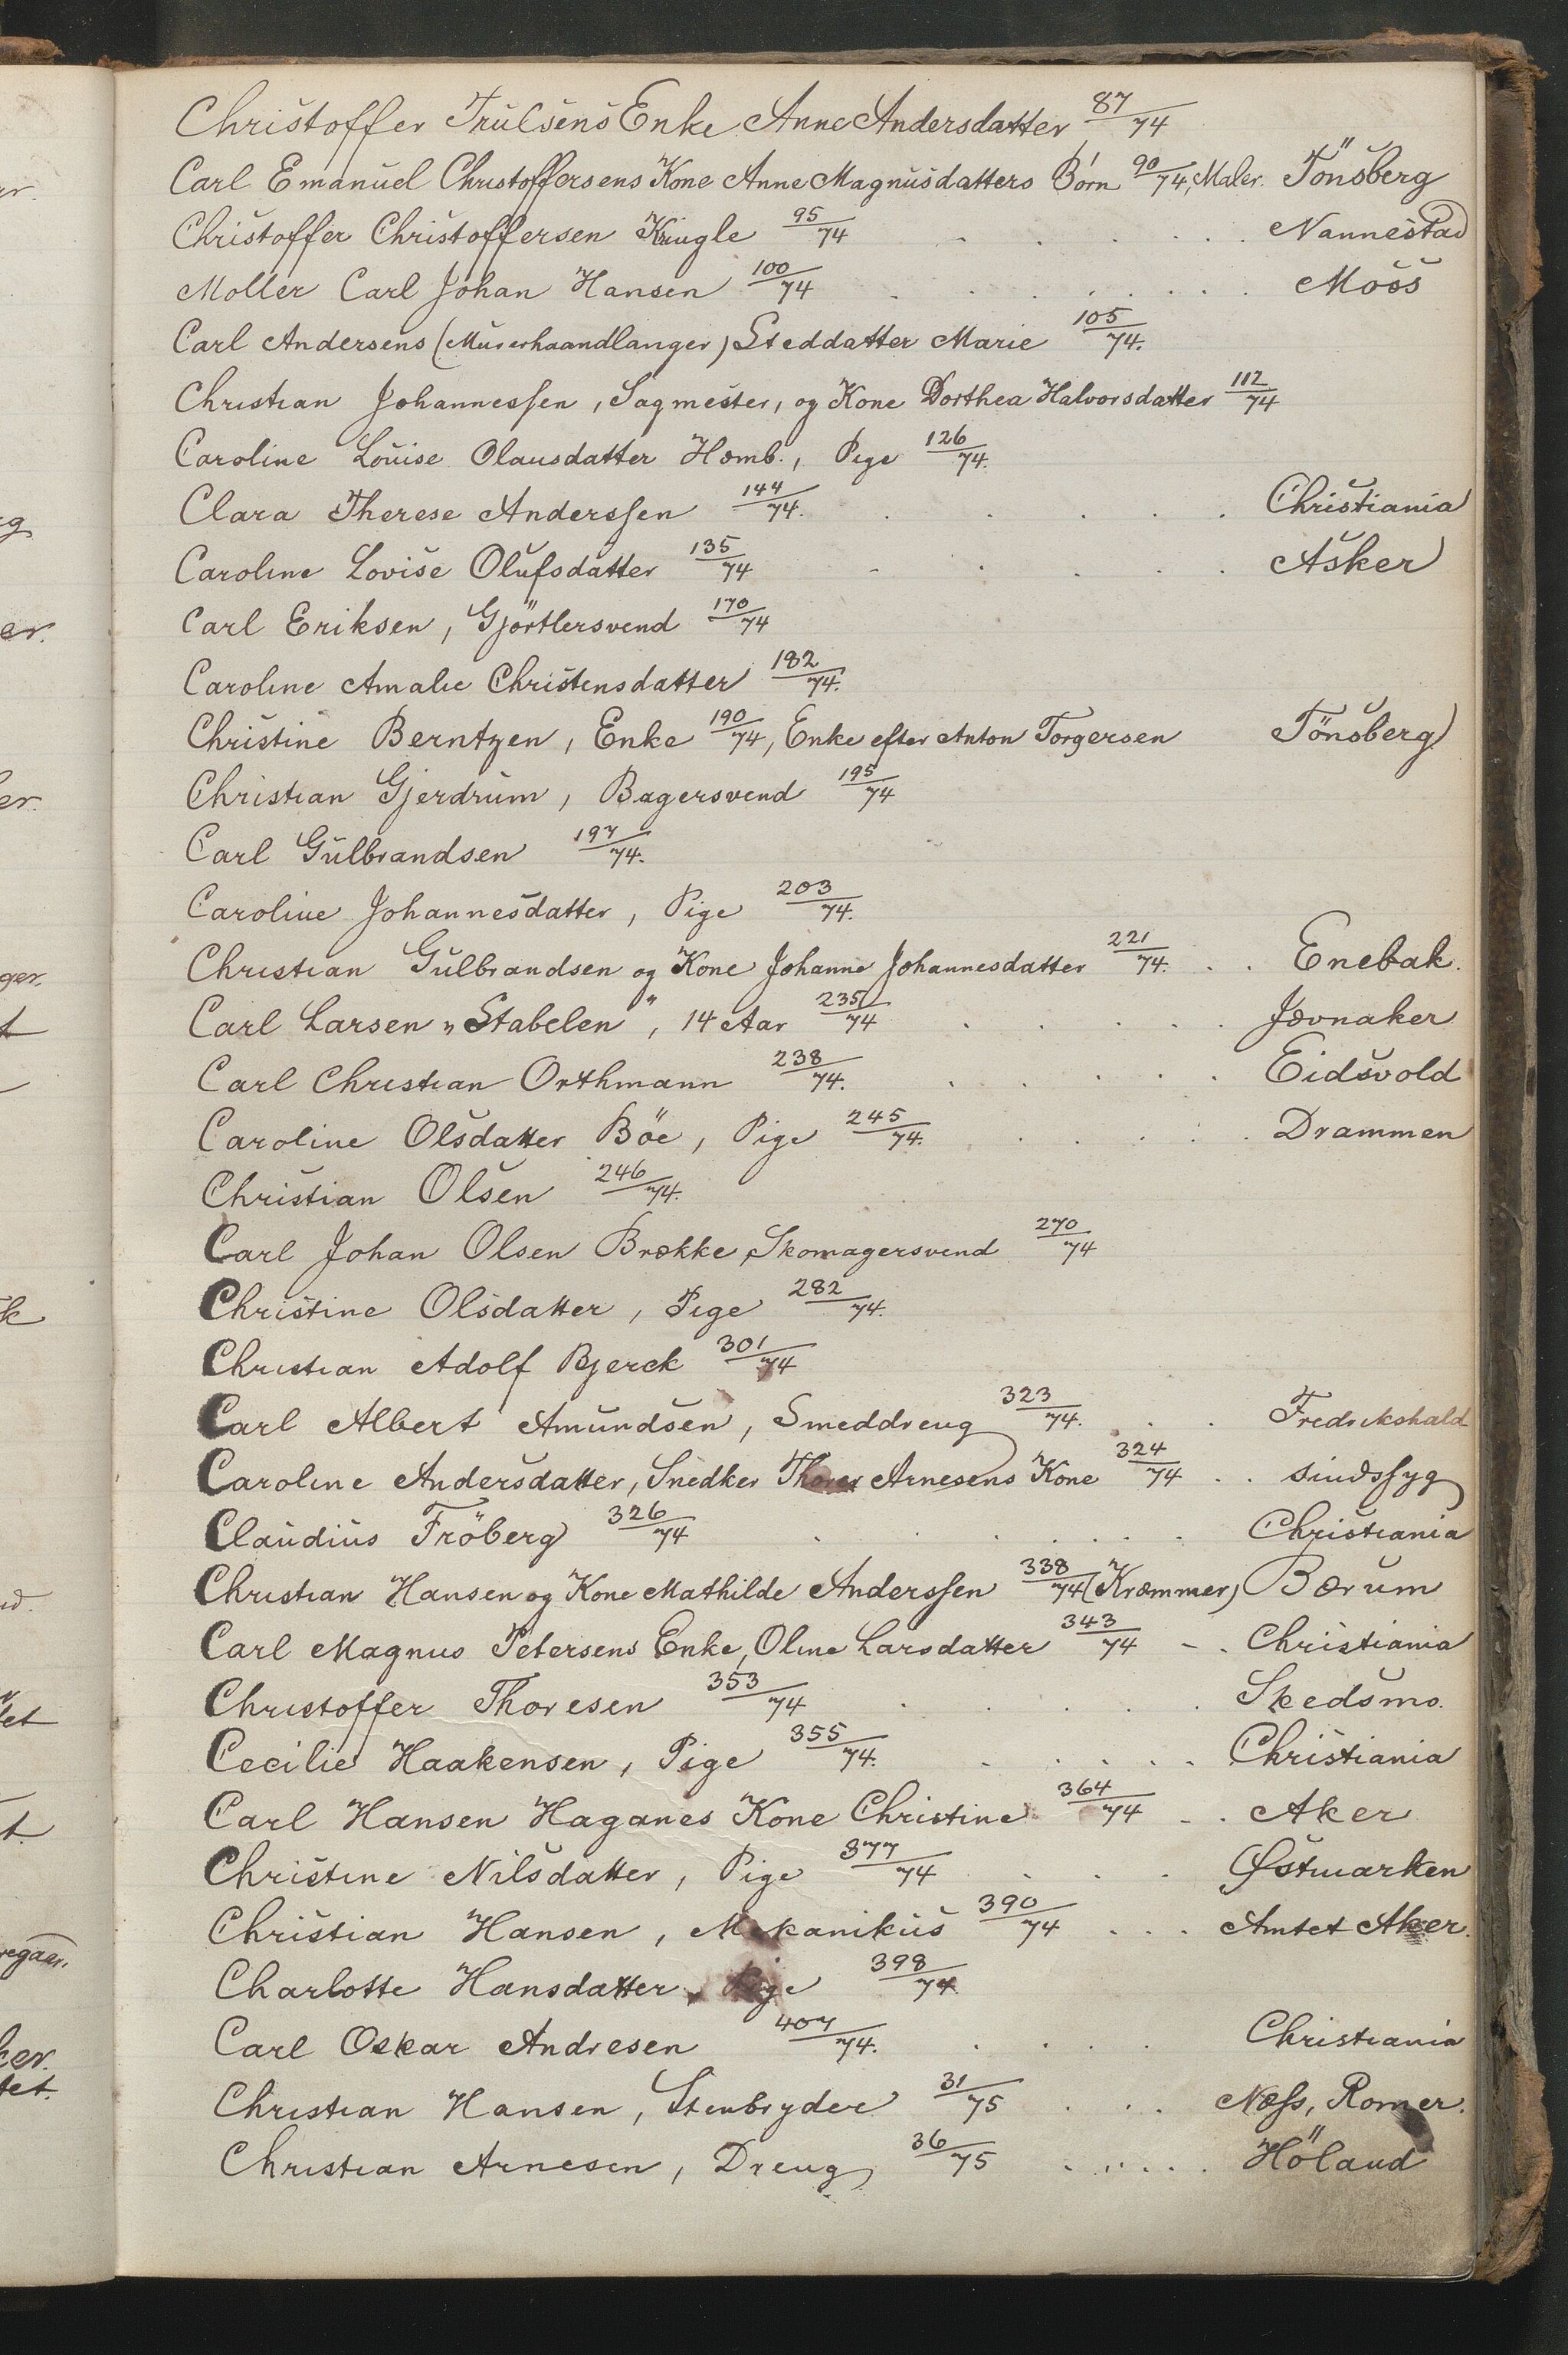 Christoffer Trulsens Enke Anne Andersdatter 87/74
Carl Emanuel Christoffersens Kone Anne Magnusdatters Börn 90/74, Maler. Tönsberg
Christoffer Christoffersen Kringle 95/74 Nannestad
Moller Carl Johan Hansen 100/74 Moss
Carl Andersens (Murerhaandlanger) Steddatter Marie 105/74.
Christian Johannessen, Sagmester, og Kone Dorthea Halvorsdatter 112/74
Caroline Louise Olausdatter Homb., Pige 126/74.
Clara Therese Anderssen 144/74. Christiania
Caroline Lovise Olufsdatter 135/74 Asker
Carl Eriksen, Gjörtlersvend 170/74
Caroline Amalie Christensdatter 182/74.
Christine Berntzen, Enke 190/74, Enke efter Anton Torgersen Tönsberg
Christian Gjerdrum, Bagersvend 195/74
Carl Gulbrandsen 197/74.
Caroline Johannesdatter, Pige 203/74.
Christian Gulbrandsen og Kone Johanne Johannesdatter 221/74. Enebak.
Carl Larsen „Stabelen", 14 Aar 235/74 Jævnaker
Carl Christian Orthmann 238/74. Eidsvold
Caroline Olsdatter Böe, Pige 245/74. Drammen
Christian Olsen 246/74.
Carl Johan Olsen Brække, Skomagersvend 270/74
Christine Olsdatter, Pige 282/74.
Christian Adolf Bjerck 301/74
Carl Albert Amundsen, Smeddreng 323/74. Fredrikshald
Caroline Andersdatter, Snedker Thorer Arnesens Kone 324/74 sindssyg
Claudius Fröberg 326/74 Christiania
Christian Hansen og Kone Mathilde Anderssen 338/74 (Kræmmer) Bærum
Carl Magnus Petersens Enke, Oline Larsdatter 343/74 Christiania
Christoffer Thoresen 353/74 Skedsmo.
Cecilie Haakensen, Pige 355/74. Christiania
Carl Hansen Haganes Kone Christine 364/74 Aker
Christine Nilsdatter, Pige 377/74 Østmarken
Christian Hansen, Mekanikus 390/74 Amtet Aker.
Charlotte Hansdatter, Pige 398/74
Carl Oskar Andresen 407/74. Christiania
Christian Hansen, Stenbryder 31/75 Næss, Romer.
Christian Arnesen, Dreng 36/75 Höland